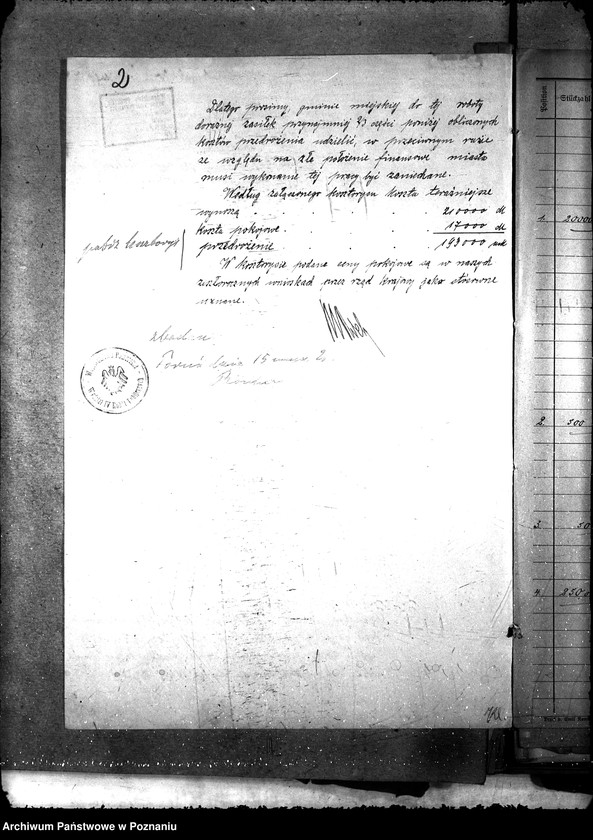 2
Dlatego prosimy, gminie miejskiej do tej roboty
doraźnej zasiłek przynajmniej 2/3 części poniżej obliczonych
kosztów przedrożenia udzielić, w przeciwnym razie
ze względu na złe położenie finansowe miasta
musi wykonanie tej pracy być zaniechane.
Według załączonego kosztorysu koszta teraźniejsze
wynoszą . . . . 210000 M
koszta pokojowe . . . 17000 M
przedrożenie . . . 193000 mk
W kosztorysie podane ceny pokojowe są w naszych
wnioskach przez rząd krajowy jako stosowne
uznane.
zbadano
15
Position
Stückzahl
1. 20000
2. 500
3. 50
4. 250
Archiwum Państwowe w Poznaniu